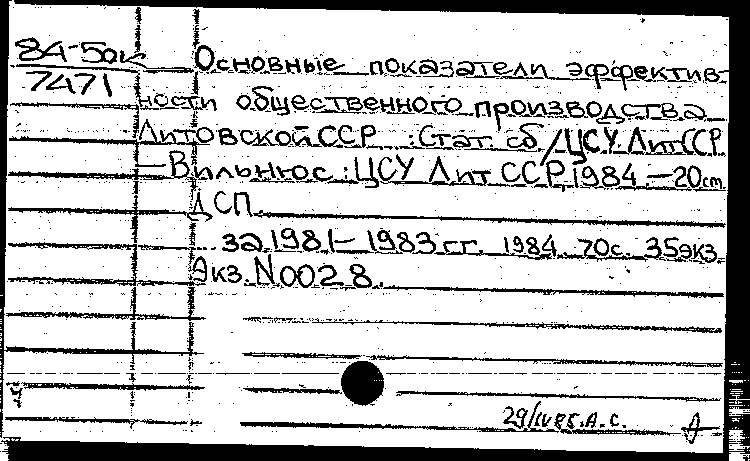 84-5ок
7471
Основные показатели эффектив-
ности общественного производства
Литовской ССР : Стат. сб / ЦСУ ЛитССР.
— Вильнюс : ЦСУ Лит ССР, 1984. — 20 cm.
ДСП.
за 1981 — 1983 гг. 1984. 70с. 35экз.
Экз. N0028.
29/IV85. А. С.